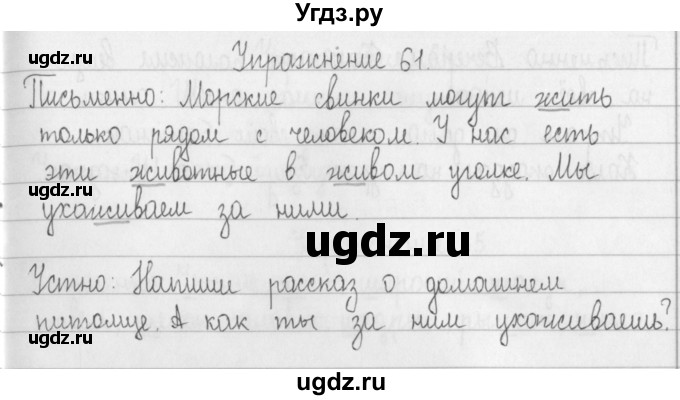 Угдз.ру
ugdz.ru ugdz.ru
Упражнение 61.
Письменно: Морские свинки могут жить
только рядом с человеком. У нас есть
эти животные в живом уголке. Мы
ugdz.ru
ухаживаем за ними.
ugdz.ru
Устно: Напиши рассказ о домашнем
питомце. А как ты за ним ухаживаешь?
ugdz.ru ugdz.ru
ugdz.ru